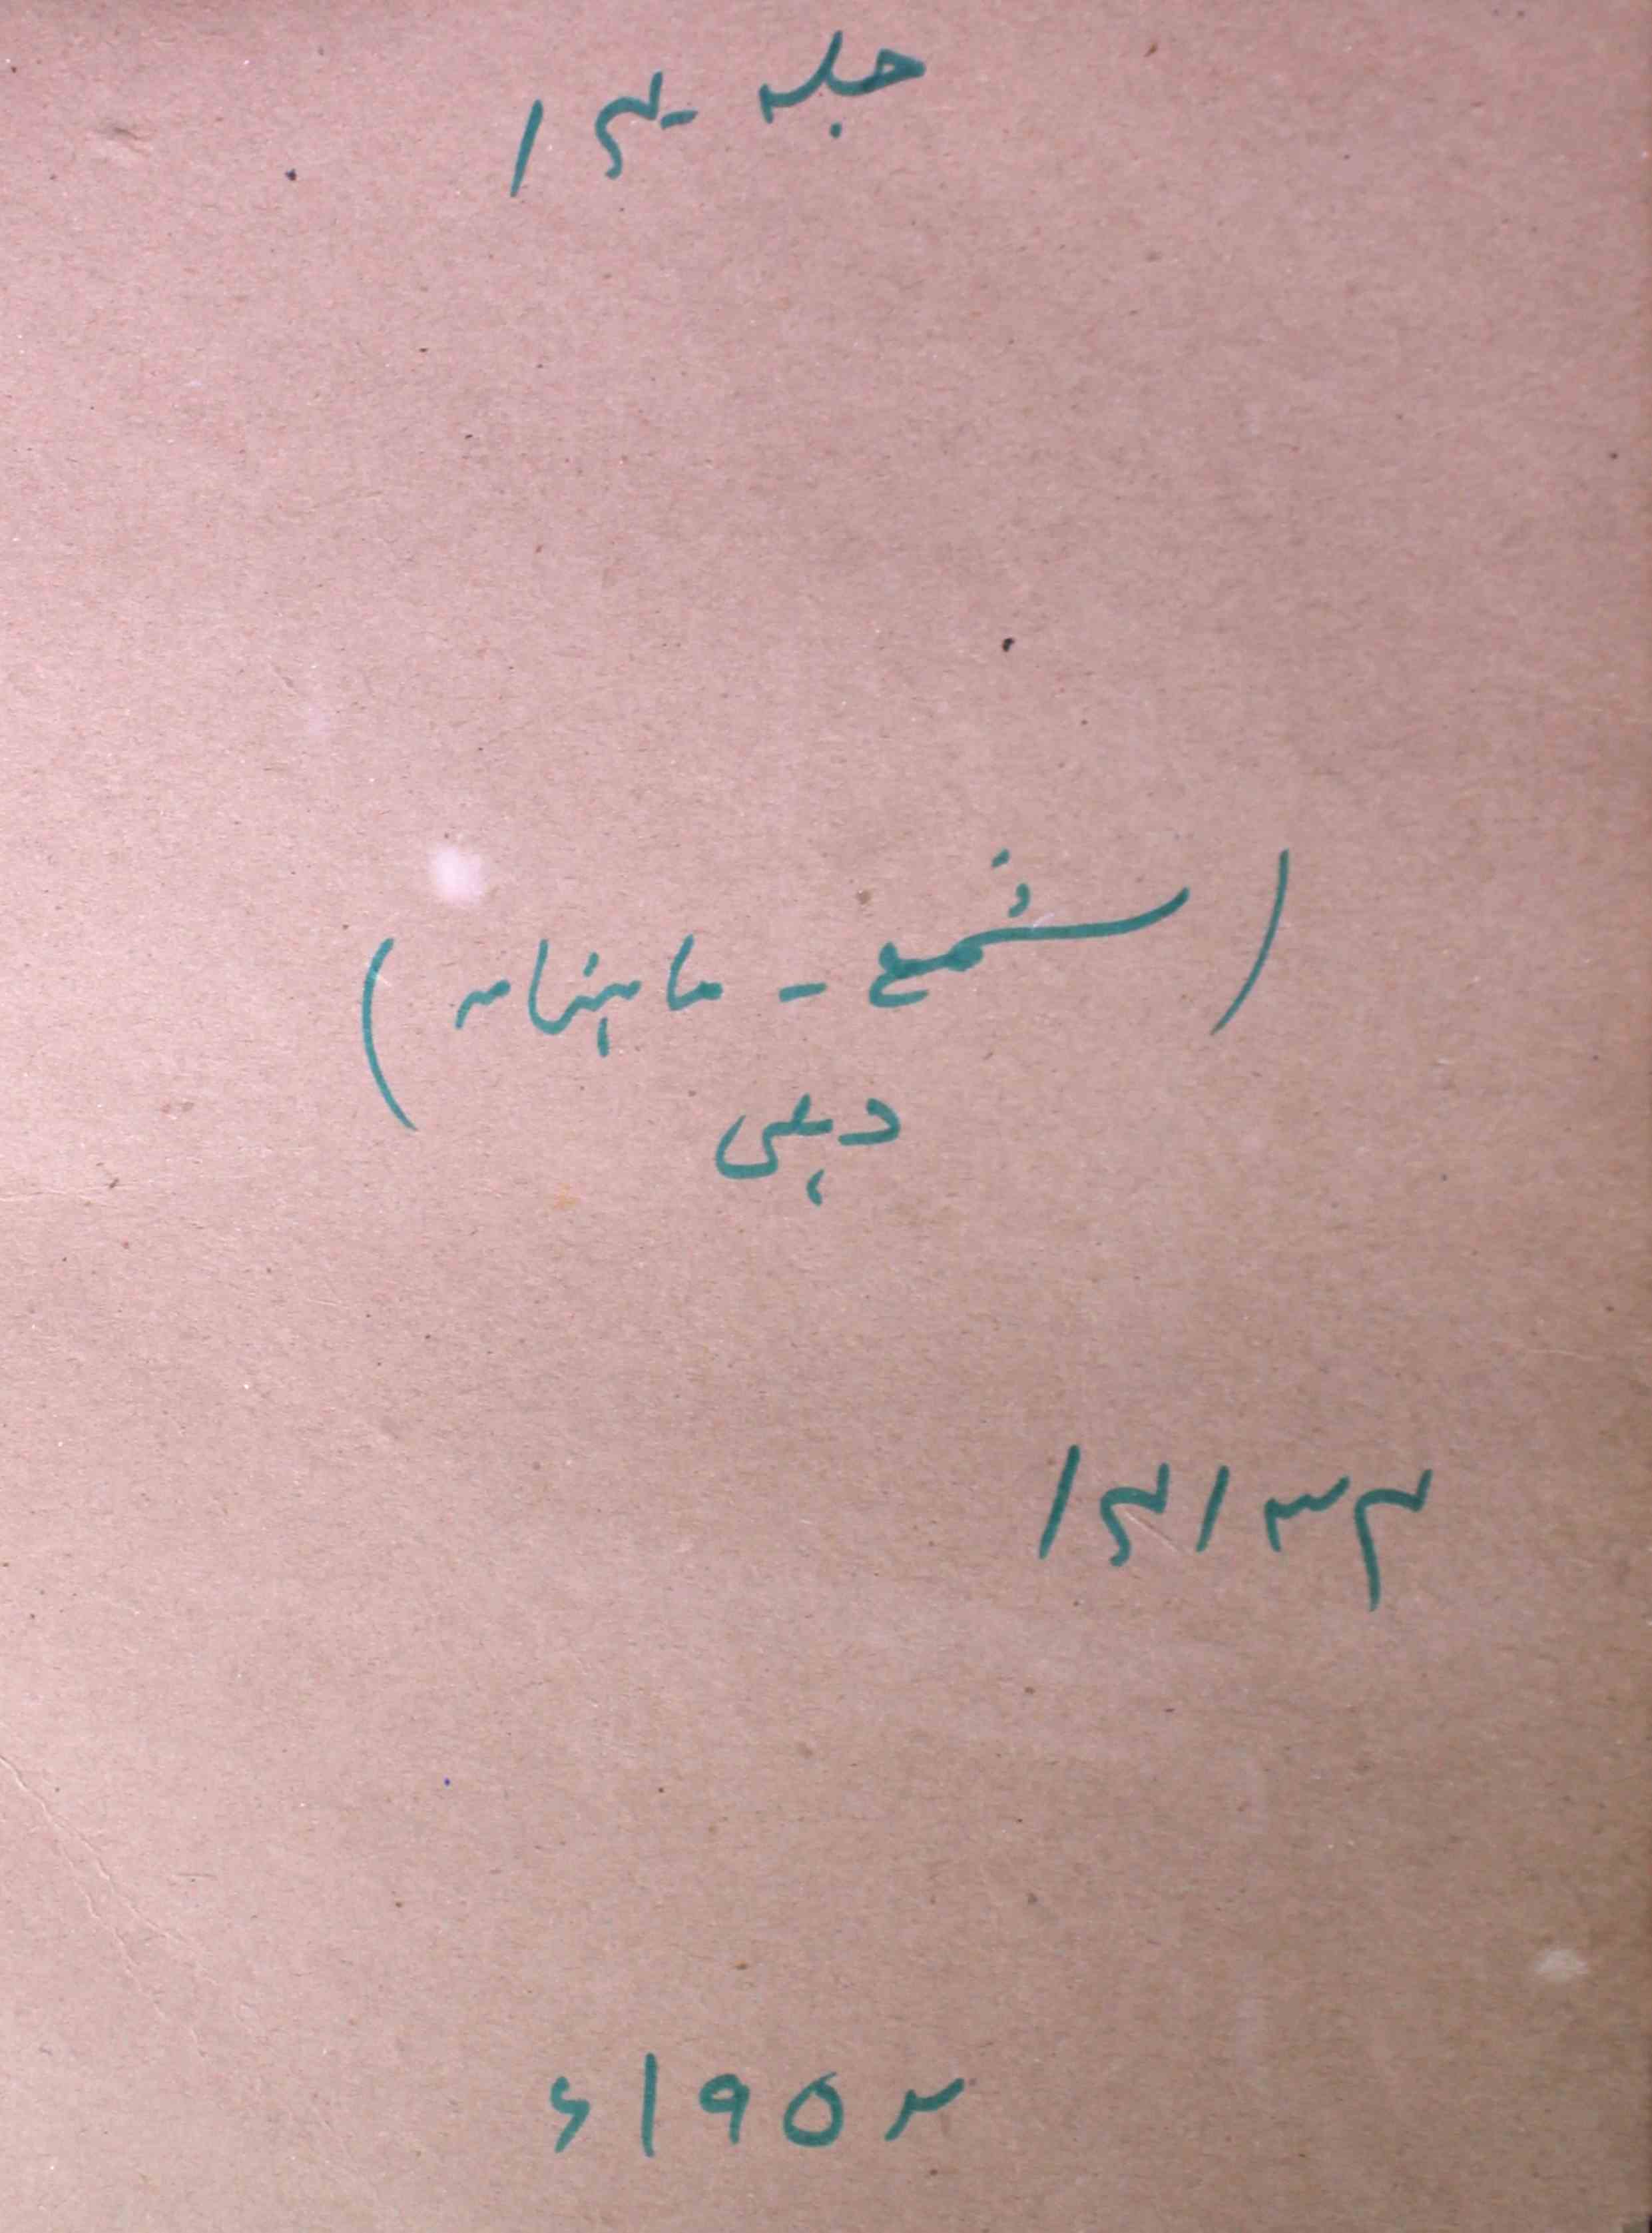 جلد - ۱۴
(شمع - ماہنامہ)
دہلی
۱۴۱۳۲
۱۹۵۲ء